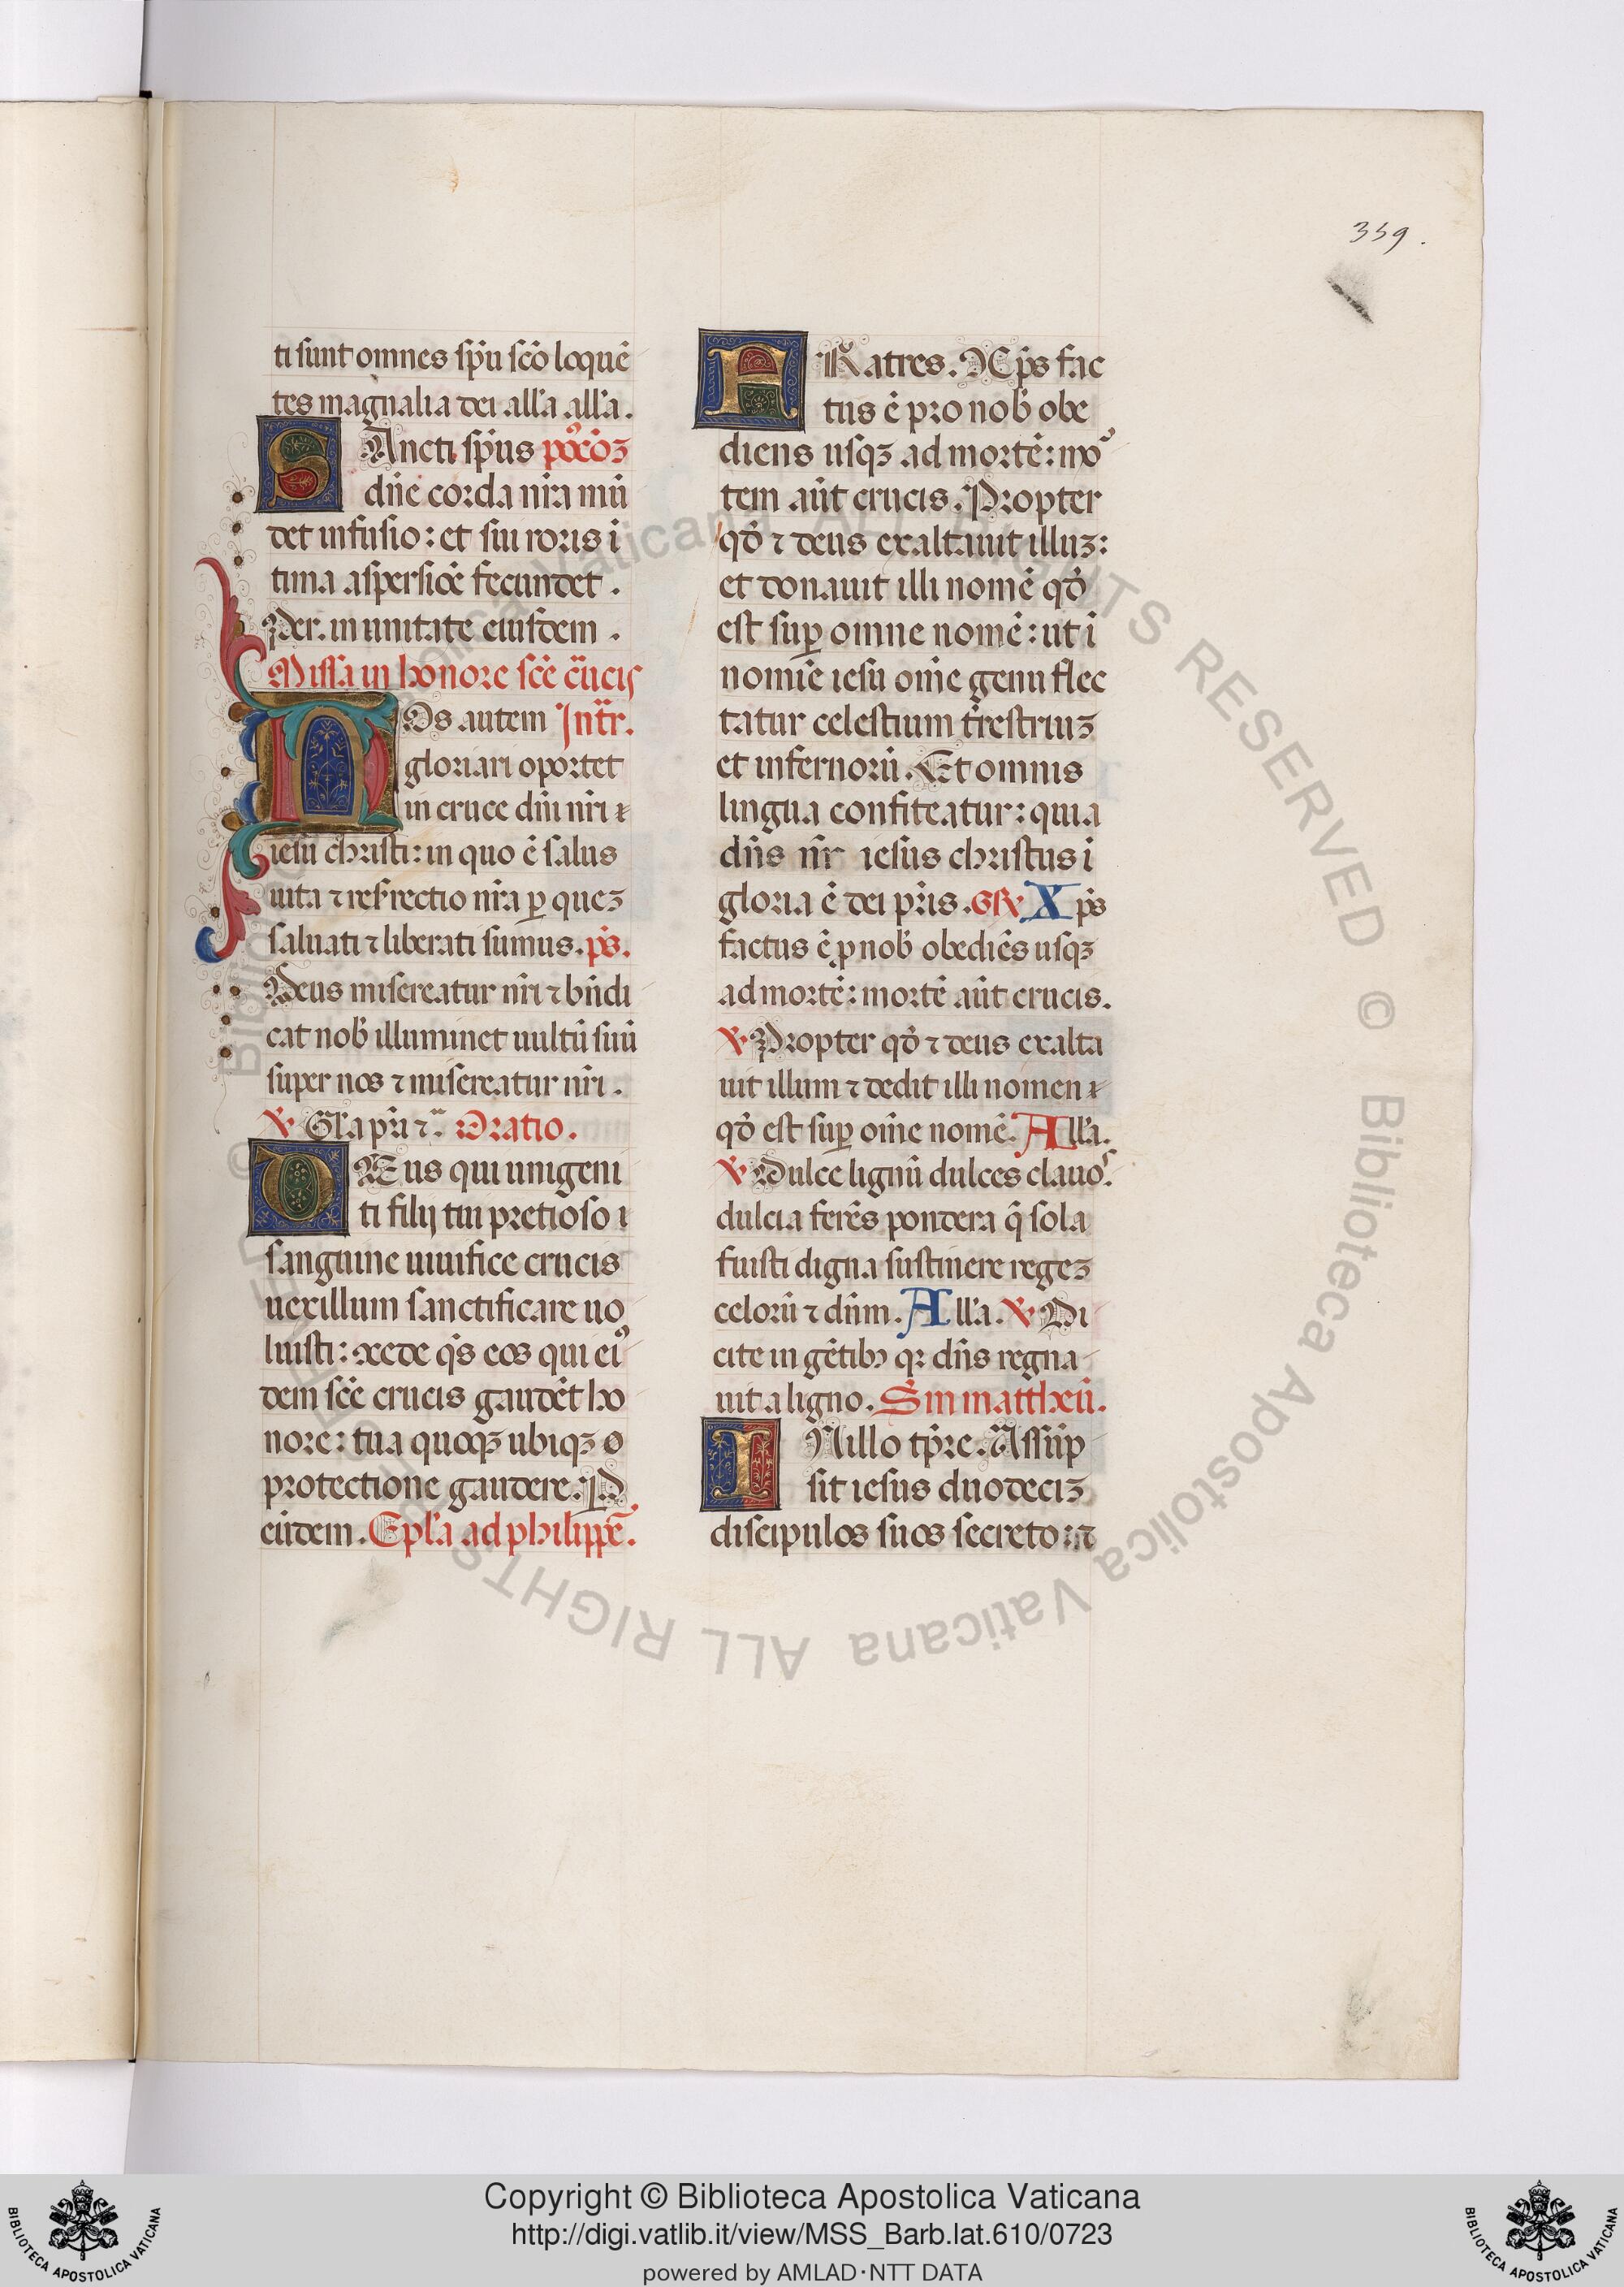 359.
ti sunt omnes sp̄u scō loquē
tes magnalia dei all'a all'a.
SAncti sp̄us pōcōꝫ
dn̄e corda nr̄a mū
det infusio: et sui roris ī
tima aspersiōe fecundet.
Per. in unitate eiusdem.
Missa in honore scē c̄ucis
NOs autem Intr̄.
gloriari oportet
in cruce dn̄i nr̄i
iesu christi: in quo ē salus
uita ⁊ resrectio nr̄a ꝑ queꝫ
saluati ⁊ liberati sumus. ps̄.
Deus misereatur nr̄i ⁊ bn̄di
cat nob̄ illuminet uultū suū
super nos ⁊ misereatur nr̄i.
℣ Gl'a pr̄i ⁊ Oratio.
DEus qui unigeni
ti filij tui pretioso
sanguine uiuifice crucis
uexillum sanctificare uo
luisti: ꝯcede qs̄ eos qui ei᾽
dem scē crucis gaudēt ho
nore: tua quoqꝫ ubiqꝫ
protectione gaudere. P
eūdem. Epl'a ad philippē.
FRatres. Xp̄s fac
tus ē pro nob̄ obe
diens usqꝫ ad mortē: mo᾽
tem aūt crucis. Propter
qō ⁊ deus exaltauit illuꝫ:
et donauit illi nomē qō
est suꝑ omne nomē: ut ī
nomīe iesu om̄e genu flec
tatur celestium tr̄estriuꝫ
et infernorū. Et omnis
lingua confiteatur: quia
dn̄s nr̄ iesus christus ī
gloria ē dei pr̄is. GR̄ Xp̄s
factus ē ꝓ nob̄ obediēs usqꝫ
ad mortē: mortē aūt crucis.
℣ Propter qō ⁊ deus exalta
uit illum ⁊ dedit illi nomen
qō est suꝑ om̄e nomē. All'a.
℣ Dulce lignū dulces clauo᾽.
dulcia ferēs pondera q̄ sola
fuisti digna sustinere regeꝫ
celorū ⁊ dn̄m. All'a. ℣ Di
cite in gētibꝫ qꝛ dn̄s regna
uit a ligno. S̄m mattheū.
IN illo tp̄re. Assūp
sit iesus duodeciꝫ
discipulos suos secreto: ⁊
Biblioteca Apostolica Vaticana ALL RIGHTS RESERVED ©
Copyright © Biblioteca Apostolica Vaticana
http://digi.vatlib.it/view/MSS_Barb.lat.610/0723
powered by AMLAD·NTT DATA
BIBLIOTECA APOSTOLICA VATICANA
BIBLIOTECA APOSTOLICA VATICANA